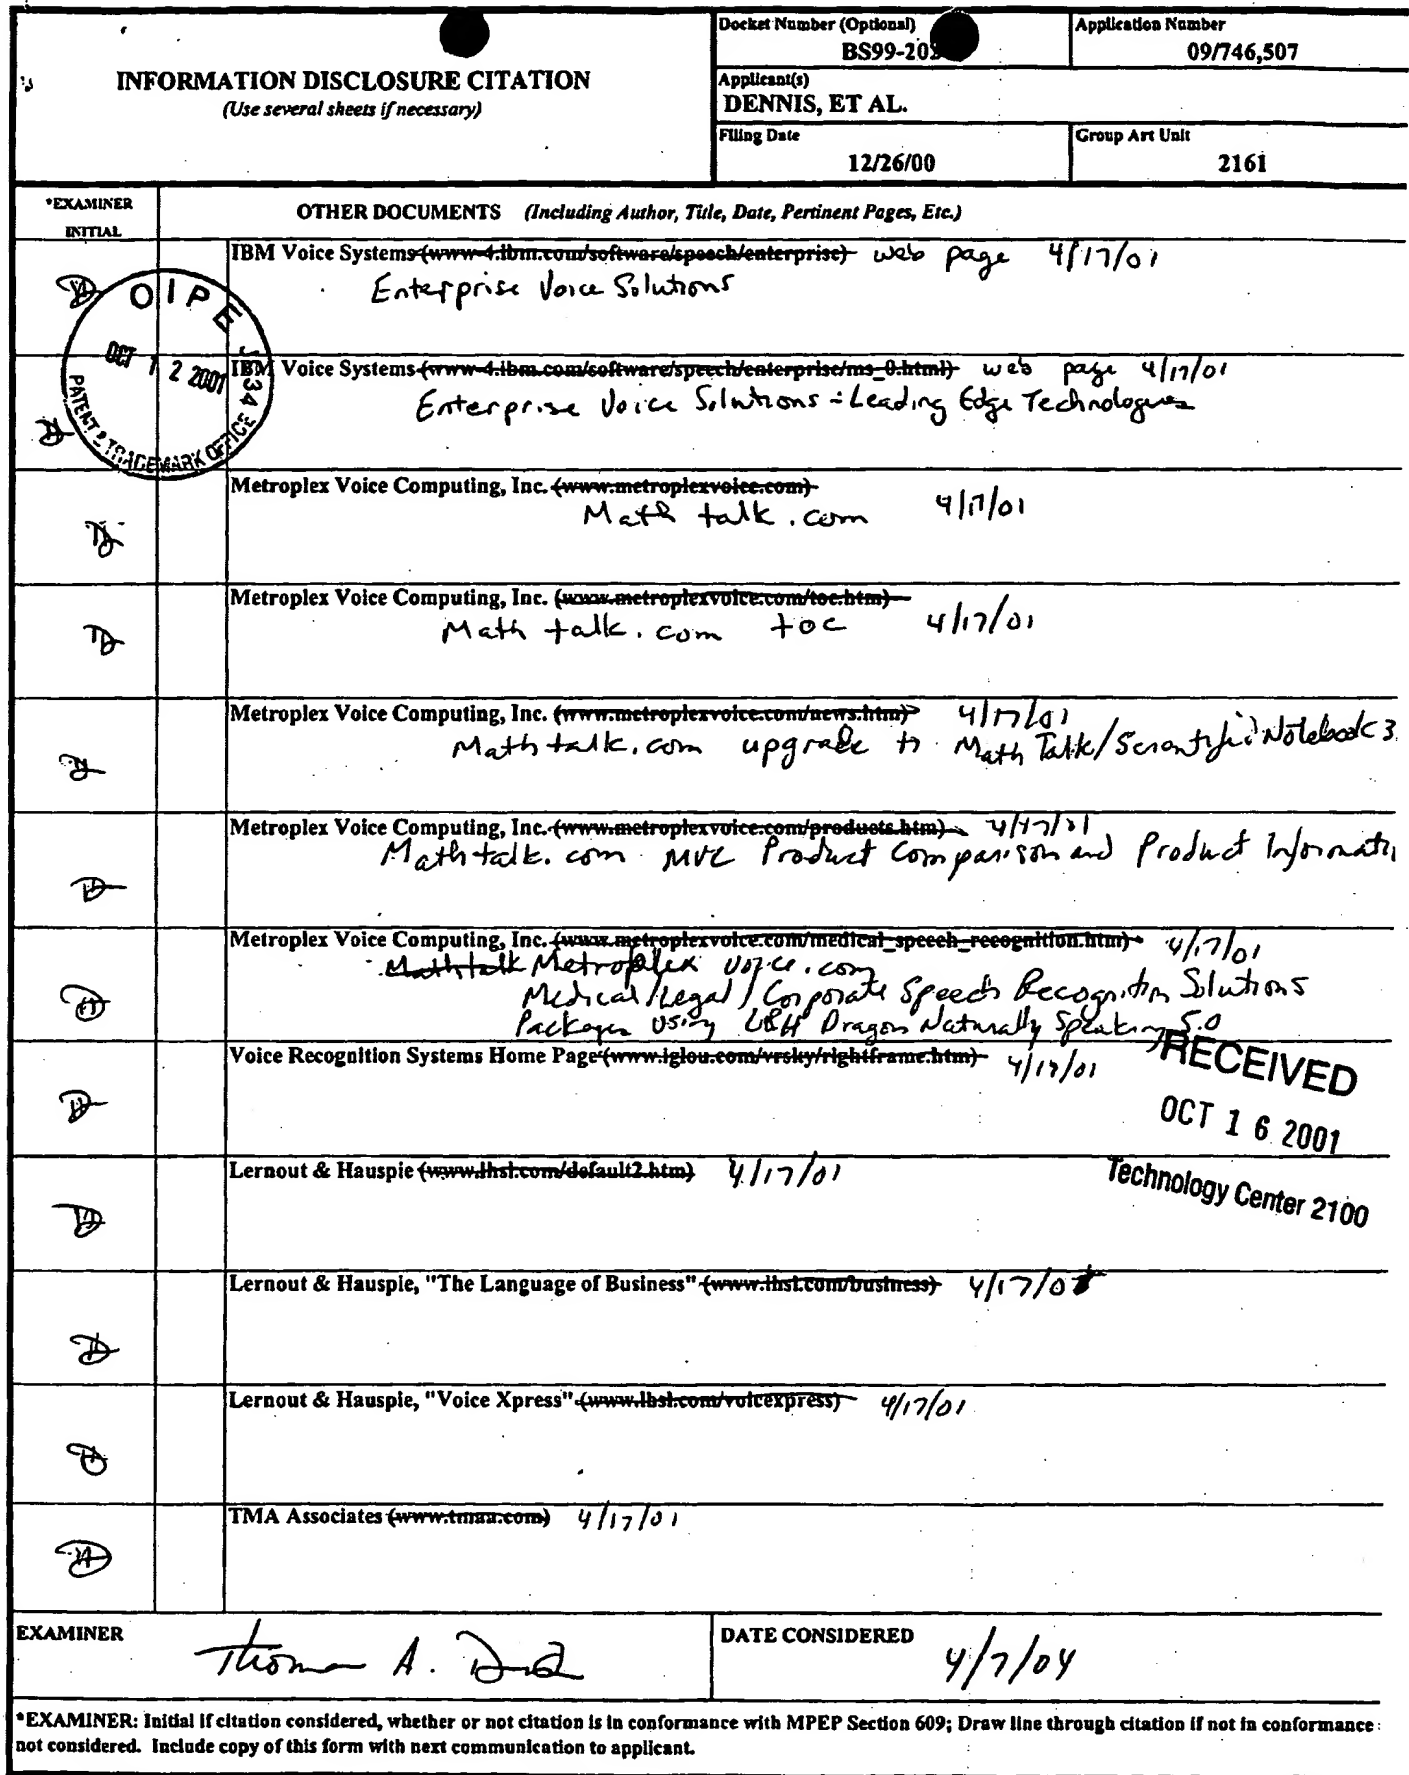 INFORMATION DISCLOSURE CITATION
(Use several sheets if necessary)
Docket Number (Optional)
BS99-202
Application Number
09/746,507
Applicant(s)
DENNIS, ET AL.
Filing Date
12/26/00
Group Art Unit
2161
*EXAMINER
INITIAL
OTHER DOCUMENTS (Including Author, Title, Date, Pertinent Pages, Etc.)
IBM Voice Systems (www-4.ibm.com/software/speech/enterprise) web page 4/17/01
Enterprise Voice Solutions
OIPE JC343
OCT 12 2001
PATENT & TRADEMARK OFFICE
IBM Voice Systems (www-4.ibm.com/software/speech/enterprise/ms_0.html) web page 4/17/01
Enterprise Voice Solutions - Leading Edge Technologies
Metroplex Voice Computing, Inc. (www.metroplexvoice.com)
Math talk.com 4/17/01
Metroplex Voice Computing, Inc. (www.metroplexvoice.com/toc.htm)
Math talk.com toc 4/17/01
Metroplex Voice Computing, Inc. (www.metroplexvoice.com/news.htm) 4/17/01
Math talk.com upgrade to Math Talk/Scientific Notebook 3.
Metroplex Voice Computing, Inc. (www.metroplexvoice.com/products.htm) 4/17/01
Math talk.com MVC Product Comparison and Product Informati
Metroplex Voice Computing, Inc. (www.metroplexvoice.com/medical_speech_recognition.htm) 4/17/01
Mathtalk Metroplex voice.com
Medical/Legal/Corporate Speech Recognition Solutions
Packages Using L&H Dragon Naturally Speaking 5.0
Voice Recognition Systems Home Page (www.iglou.com/vrsky/rightframe.htm) 4/17/01
RECEIVED
OCT 16 2001
Technology Center 2100
Lernout & Hauspie (www.lhsl.com/default2.htm) 4/17/01
Lernout & Hauspie, "The Language of Business" (www.lhsl.com/business) 4/17/01
Lernout & Hauspie, "Voice Xpress" (www.lhsl.com/voicexpress) 4/17/01
TMA Associates (www.tmaa.com) 4/17/01
EXAMINER
Thomas A. D
DATE CONSIDERED
4/7/04
*EXAMINER: Initial if citation considered, whether or not citation is in conformance with MPEP Section 609; Draw line through citation if not in conformance
not considered. Include copy of this form with next communication to applicant.